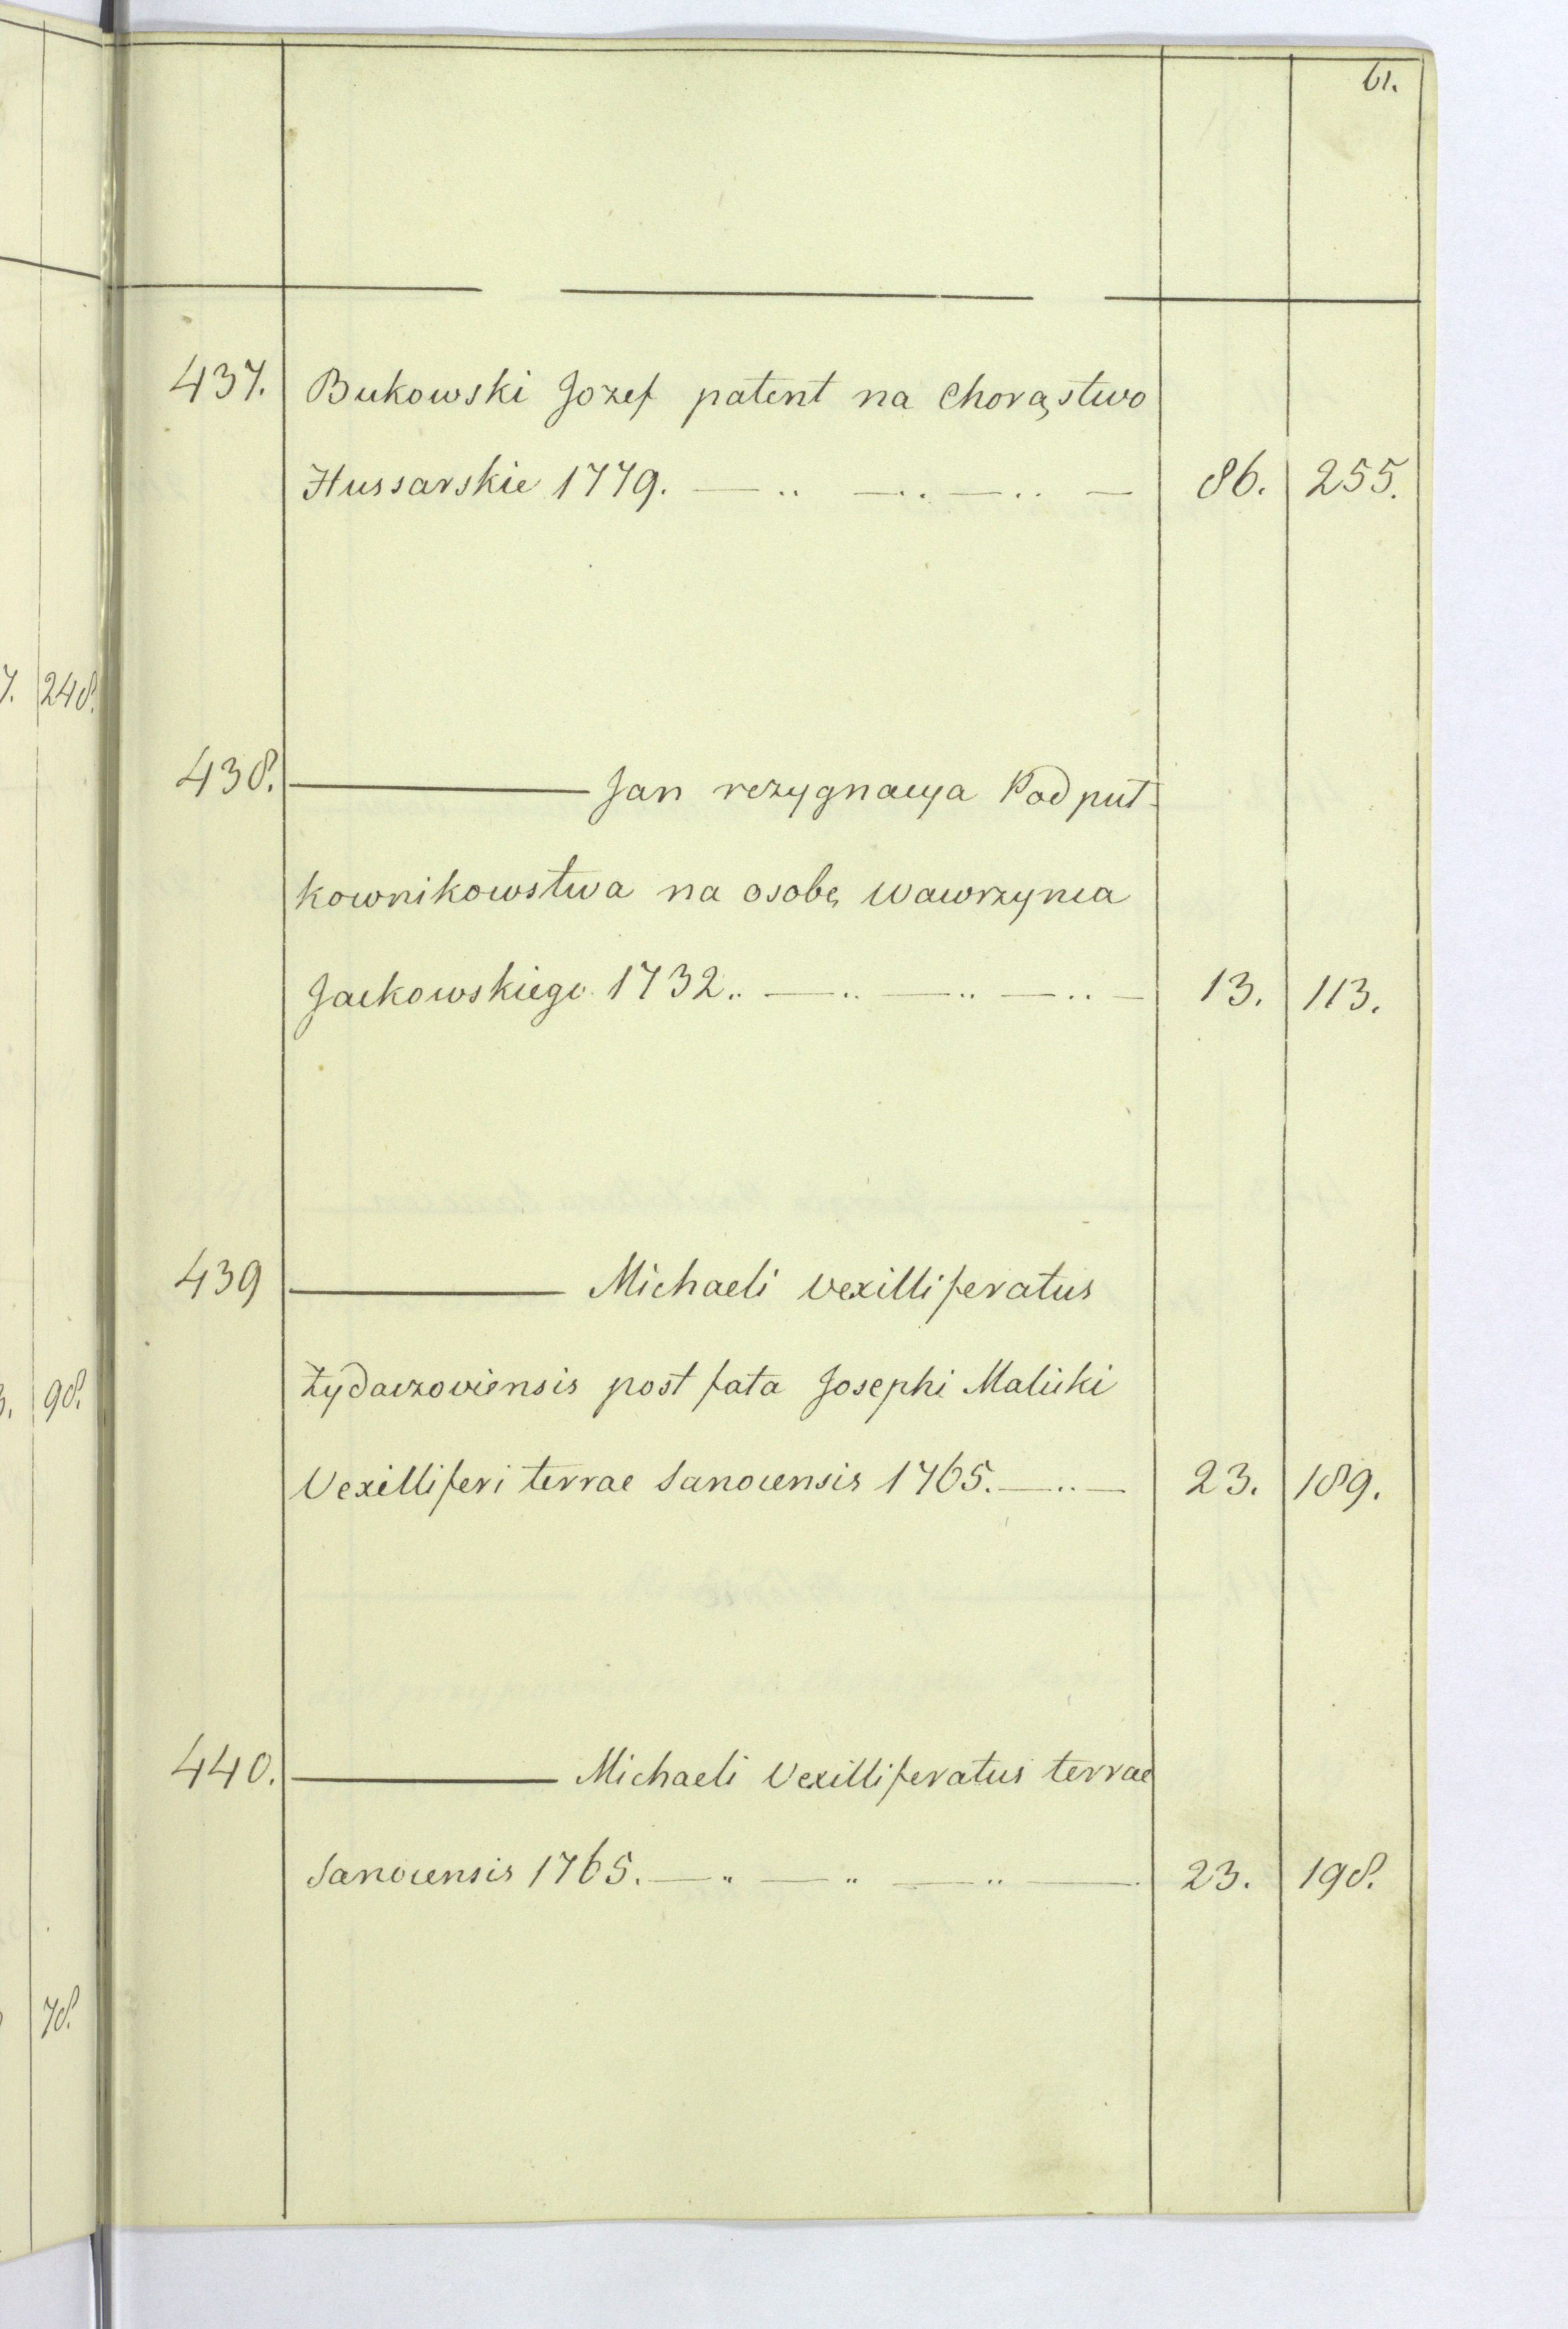 61.
437. Bukowski Jozef patent na Chorąstwo
Hussarskie 1779. — .. — .. — .. — 86. 255.
438. ——— Jan rezygnacya Podput-
kownikowstwa na osobę Wawrzynca
Jackowskiego 1732. — .. — .. — .. — 13. 113.
439 ——— Michaeli Vexilliferatus
Żydaczoviensis post fata Josephi Malicki
Vexilliferi terrae Sanocensis 1765. — .. — 23. 189.
440. ——— Michaeli Vexilliferatus terrae
Sanocensis 1765. — " — " — " — 23. 198.
248.
98.
78.